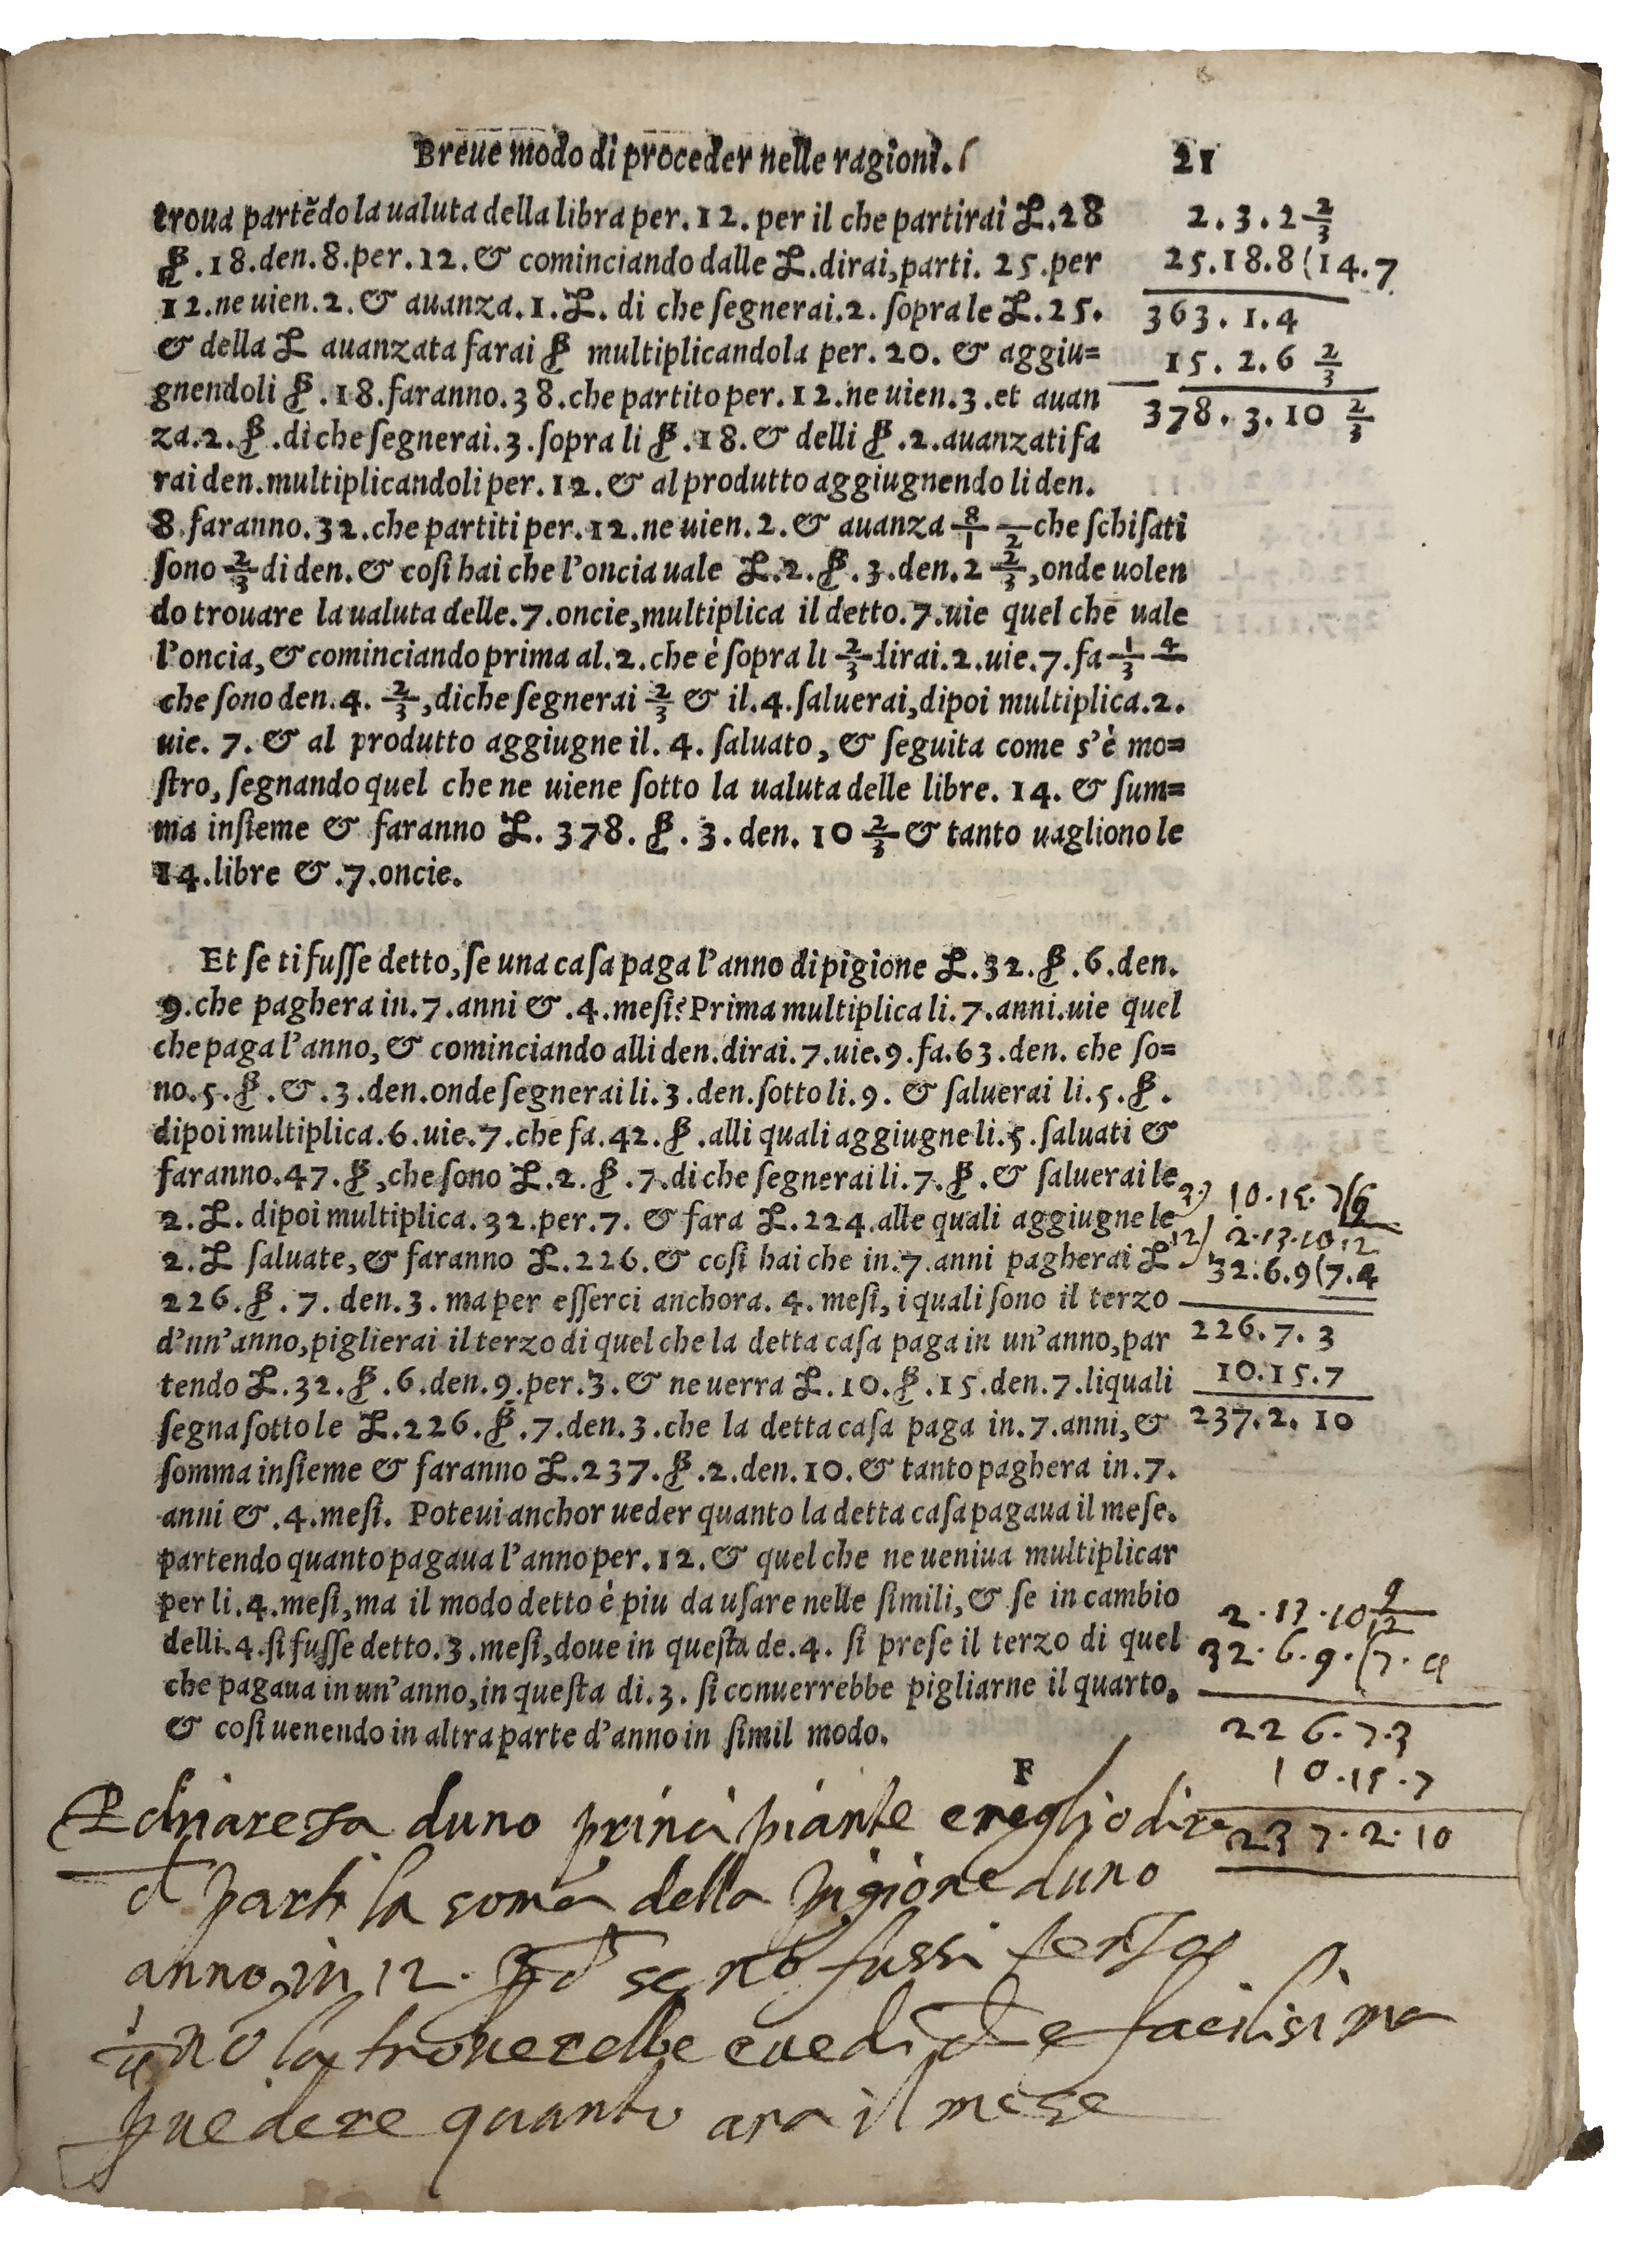 Breue modo di proceder nelle ragioni. 21
troua partẽdo la ualuta della libra per. 12. per il che partirai L. 28
ß. 18. den. 8. per. 12. & cominciando dalle L. dirai, parti. 25. per
12. ne uien. 2. & auanza. 1. L. di che ſegnerai. 2. ſopra le L. 25.
& della L auanzata farai ß multiplicandola per. 20. & aggiu=
gnendoli ß. 18. faranno. 38. che partito per. 12. ne uien. 3. et auan
za. 2. ß. di che ſegnerai. 3. ſopra li ß. 18. & delli ß. 2. auanzati fa
rai den. multiplicandoli per. 12. & al produtto aggiugnendo li den.
8. faranno. 32. che partiti per. 12. ne uien. 2. & auanza 8/12 che ſchiſati
ſono 2/3 di den. & coſi hai che l'oncia uale L. 2. ß. 3. den. 2 2/3, onde uolen
do trouare la ualuta delle. 7. oncie, multiplica il detto. 7. uie quel che uale
l'oncia, & cominciando prima al. 2. che è ſopra li 2/3 dirai. 2. uie. 7. fa 1/3 4
che ſono den. 4. 2/3, di che ſegnerai 2/3 & il. 4. ſaluerai, dipoi multiplica. 2.
uie. 7. & al produtto aggiugne il. 4. ſaluato, & ſeguita come s'è mo=
ſtro, ſegnando quel che ne uiene ſotto la ualuta delle libre. 14. & ſum=
ma inſieme & faranno L. 378. ß. 3. den. 10 2/3 & tanto uagliono le
14. libre &. 7. oncie.
2. 3. 2 2/3
25. 18. 8 (14. 7
363. 1. 4
15. 2. 6 2/3
378. 3. 10 2/3
Et ſe ti fuſſe detto, ſe una caſa paga l'anno di pigione L. 32. ß. 6. den.
9. che paghera in. 7. anni &. 4. meſi? Prima multiplica li. 7. anni. uie quel
che paga l'anno, & cominciando alli den. dirai. 7. uie. 9. fa. 63. den. che ſo=
no. 5. ß. &. 3. den. onde ſegnerai li. 3. den. ſotto li. 9. & ſaluerai li. 5. ß.
dipoi multiplica. 6. uie. 7. che fa. 42. ß. alli quali aggiugne li. 5. ſaluati &
faranno. 47. ß, che ſono L. 2. ß. 7. di che ſegnerai li. 7. ß. & ſaluerai le
2. L. dipoi multiplica. 32. per. 7. & fara L. 224. alle quali aggiugne le
2. L ſaluate, & faranno L. 226. & coſi hai che in. 7. anni pagherai L
226. ß. 7. den. 3. ma per eſſerci anchora. 4. meſi, i quali ſono il terzo
d'un'anno, piglierai il terzo di quel che la detta caſa paga in un'anno, par
tendo L. 32. ß. 6. den. 9. per. 3. & ne uerra L. 10. ß. 15. den. 7. li quali
ſegna ſotto le L. 226. ß. 7. den. 3. che la detta caſa paga in. 7. anni, &
ſomma inſieme & faranno L. 237. ß. 2. den. 10. & tanto paghera in. 7.
anni &. 4. meſi. Poteui anchor ueder quanto la detta caſa pagaua il meſe.
partendo quanto pagaua l'anno per. 12. & quel che ne ueniua multiplicar
per li. 4. meſi, ma il modo detto è piu da uſare nelle ſimili, & ſe in cambio
delli. 4. ſi fuſſe detto. 3. meſi, doue in queſta de. 4. ſi preſe il terzo di quel
che pagaua in un'anno, in queſta di. 3. ſi conuerrebbe pigliarne il quarto.
& coſi uenendo in altra parte d'anno in ſimil modo.
3) 10. 15. 7
12) 2. 13. 10 9/12
32. 6. 9 (7. 4
226. 7. 3
10. 15. 7
237. 2. 10
2. 13. 10 9/12
32. 6. 9. (7. 4
226. 7. 3
10. 15. 7
237. 2. 10
F
chiareza duno principiante e meglio dire
parti la soma della pigione duno
anno in 12. se nō fussi terzo
1/4 nō la troverebbe e facilisima
vedere quanto ara il mese